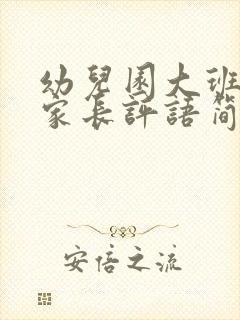 幼兒園大班
家長評語簡
安信之流